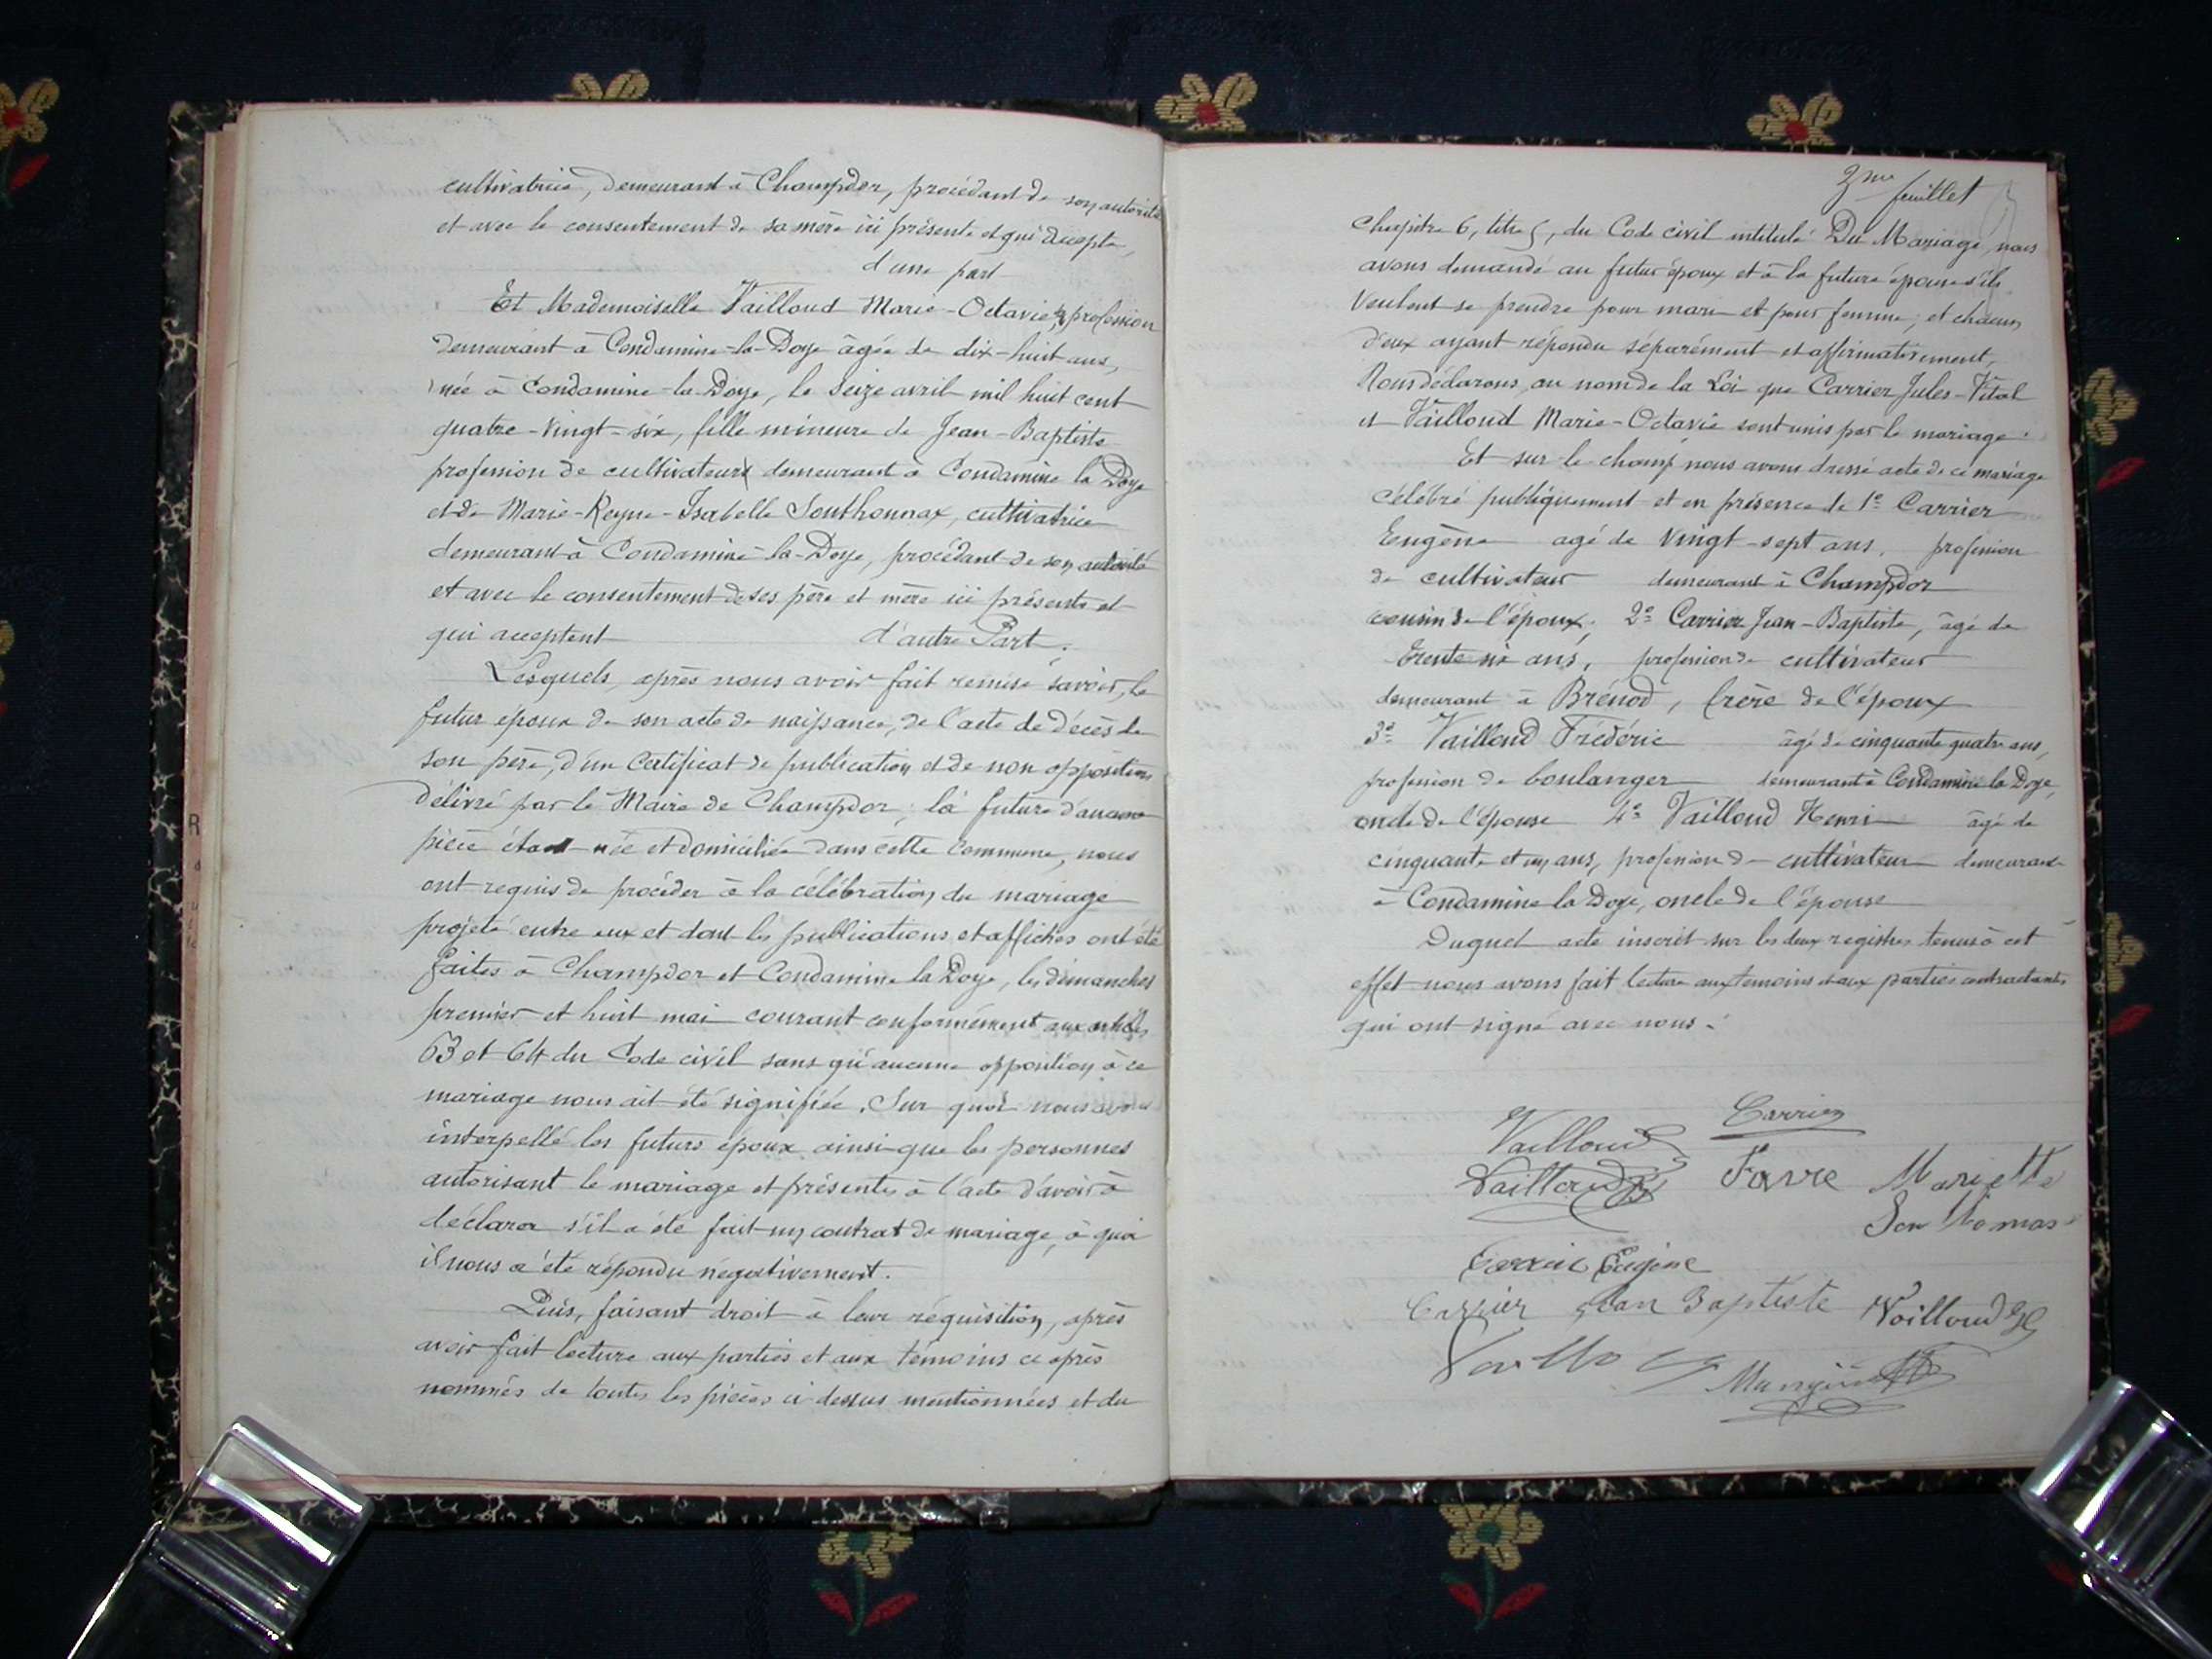 cultivatrice, demeurant à Champdor, procédant de son autorité
et avec le consentement de sa mère ici présente et qui accepte,
d'une part
Et Mademoiselle Vailloud Marie-Octavie, profession
demeurant à Condamine-la-Doye âgée de dix-huit ans,
née à Condamine-la-Doye, le seize avril mil huit cent
quatre-vingt-six, fille mineure de Jean-Baptiste
profession de cultivateur demeurant à Condamine la Doye
et de Marie-Reyne-Isabelle Sonthonnax, cultivatrice
demeurant à Condamine-la-Doye, procédant de son autorité
et avec le consentement de ses père et mère ici présents et
qui acceptent d'autre Part.
Lesquels, après nous avoir fait remise savoir, le
futur époux de son acte de naissance, de l'acte de décès de
son père, d'un Certificat de publication et de non opposition
délivré par le Maire de Champdor; la future d'aucune
pièce étant née et domiciliée dans cette commune, nous
ont requis de procéder à la célébration du mariage
projeté entre eux et dont les publications et affiches ont été
faites à Champdor et Condamine la Doye, les dimanches
premier et huit mai courant conformément aux articles
63 et 64 du Code civil sans qu'aucune opposition à ce
mariage nous ait été signifiée. Sur quoi nous avons
interpellé les futurs époux ainsi que les personnes
autorisant le mariage et présentes à l'acte d'avoir à
déclarer s'il a été fait un contrat de mariage, à quoi
il nous a été répondu négativement.
Puis, faisant droit à leur réquisition, après
avoir fait lecture aux parties et aux témoins ci après
nommés de toutes les pièces ci-dessus mentionnées et du
feuillet
Chapitre 6, titre 5, du Code civil intitulé Du Mariage, nous
avons demandé au futur époux et à la future épouse s'ils
veulent se prendre pour mari et pour femme; et chacun
d'eux ayant répondu séparément et affirmativement,
Nous déclarons, au nom de la Loi que Carrier Jules-Vital
et Vailloud Marie-Octavie sont unis par le mariage.
Et sur le champ nous avons dressé acte de ce mariage
célébré publiquement et en présence de 1º Carrier
Eugène agé de vingt-sept ans, profession
de cultivateur demeurant à Champdor
cousin de l'époux; 2º Carrier Jean-Baptiste, âgé de
trente six ans, profession de cultivateur
demeurant à Brénod, frère de l'époux
3º Vailloud Frédéric âgé de cinquante quatre ans,
profession de boulanger demeurant à Condamine la Doye,
oncle de l'épouse 4º Vailloud Henri âgé de
cinquante et un ans, profession de cultivateur demeurant
à Condamine la Doye, oncle de l'épouse
Duquel acte inscrit sur les deux registres tenus à cet
effet nous avons fait lecture aux temoins et aux parties contractantes
qui ont signé avec nous.
Carrier
Vailloud
Vailloud Favre Mariette
Carrier Eugène
Carrier Jean Baptiste Vailloud